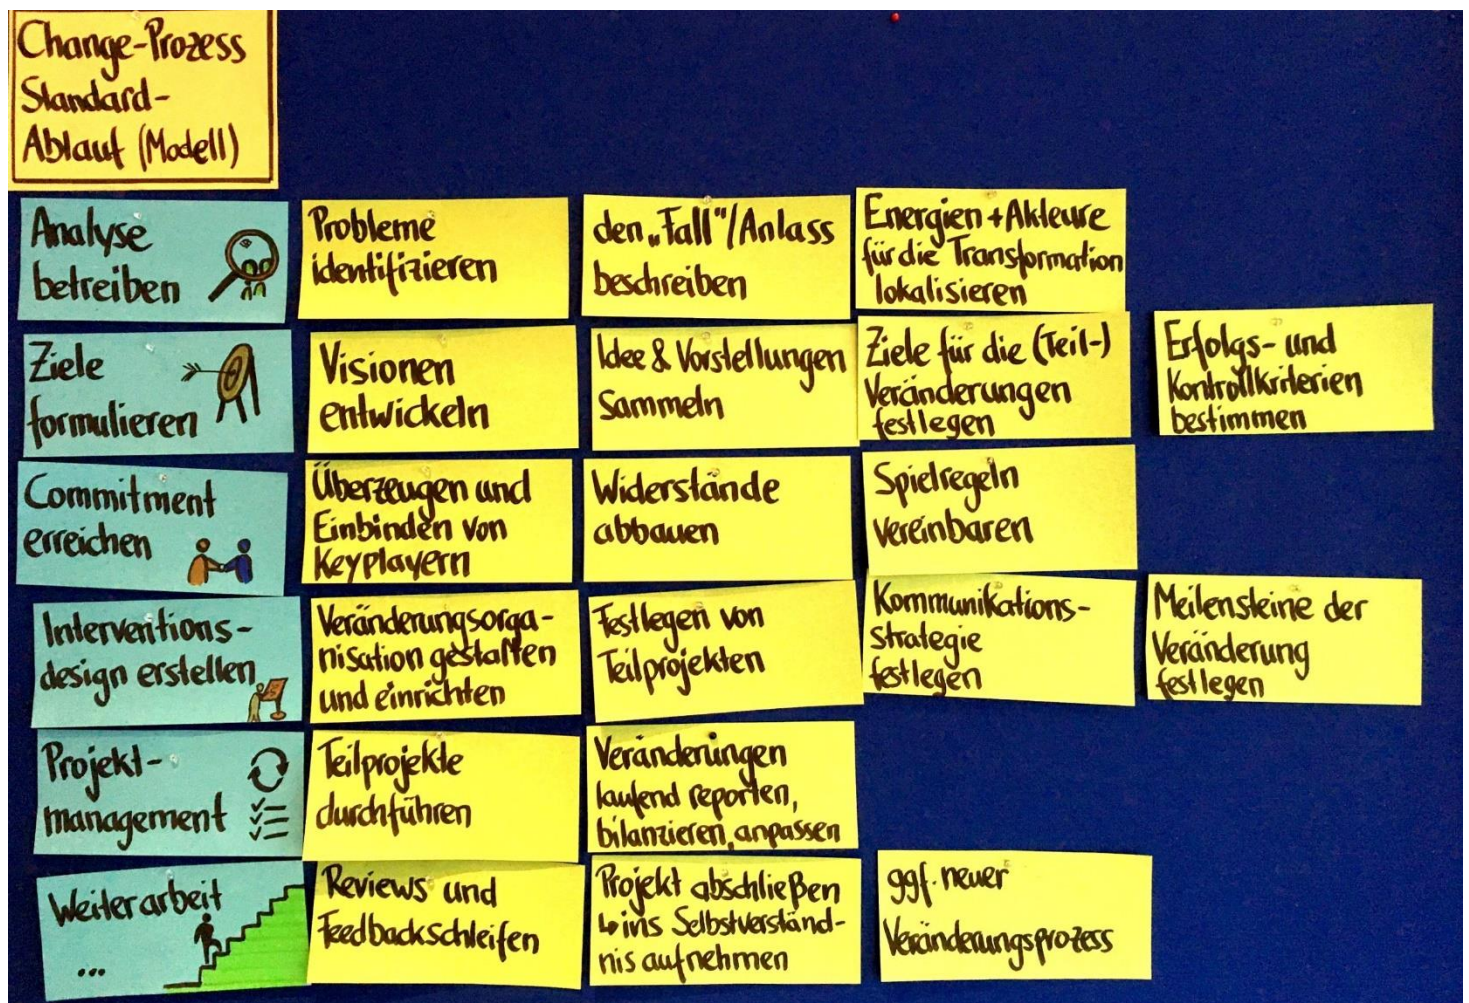 Change-Prozess
Standard-
Ablauf (Modell)
Analyse
betreiben
Probleme
identifizieren
den „Fall“/Anlass
beschreiben
Energien + Akteure
für die Transformation
lokalisieren
Ziele
formulieren
Visionen
entwickeln
Idee & Vorstellungen
Sammeln
Ziele für die (Teil-)
Veränderungen
festlegen
Erfolgs- und
Kontrollkriterien
bestimmen
Commitment
erreichen
Überzeugen und
Einbinden von
Keyplayern
Widerstände
abbauen
Spielregeln
vereinbaren
Interventions-
design erstellen
Veränderungsorga-
nisation gestalten
und einrichten
Festlegen von
Teilprojekten
Kommunikations-
strategie
festlegen
Meilensteine der
Veränderung
festlegen
Projekt-
management
Teilprojekte
durchführen
Veränderungen
laufend reporten,
bilanzieren, anpassen
Weiterarbeit
...
Reviews und
Feedbackschleifen
Projekt abschließen
↳ ins Selbstverständ-
nis aufnehmen
ggf. neuer
Veränderungsprozess